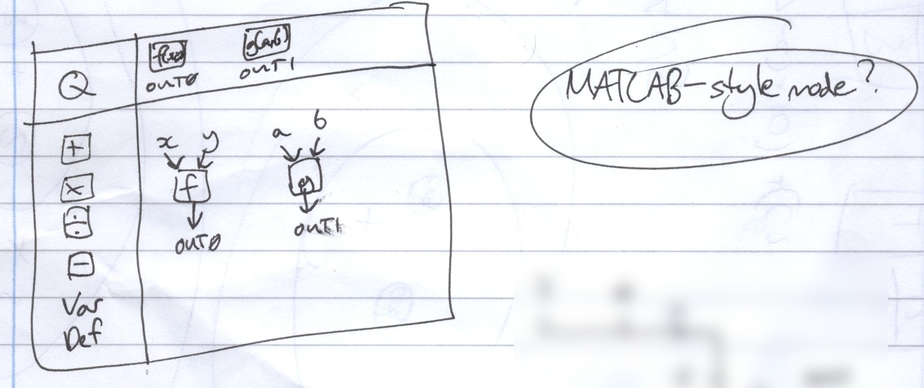 f(x,y) g(a,b)
OUT0 OUT1
Q
+
×
÷
−
Var
Def
x y a b
f g
OUT0 OUT1
MATLAB-style mode?